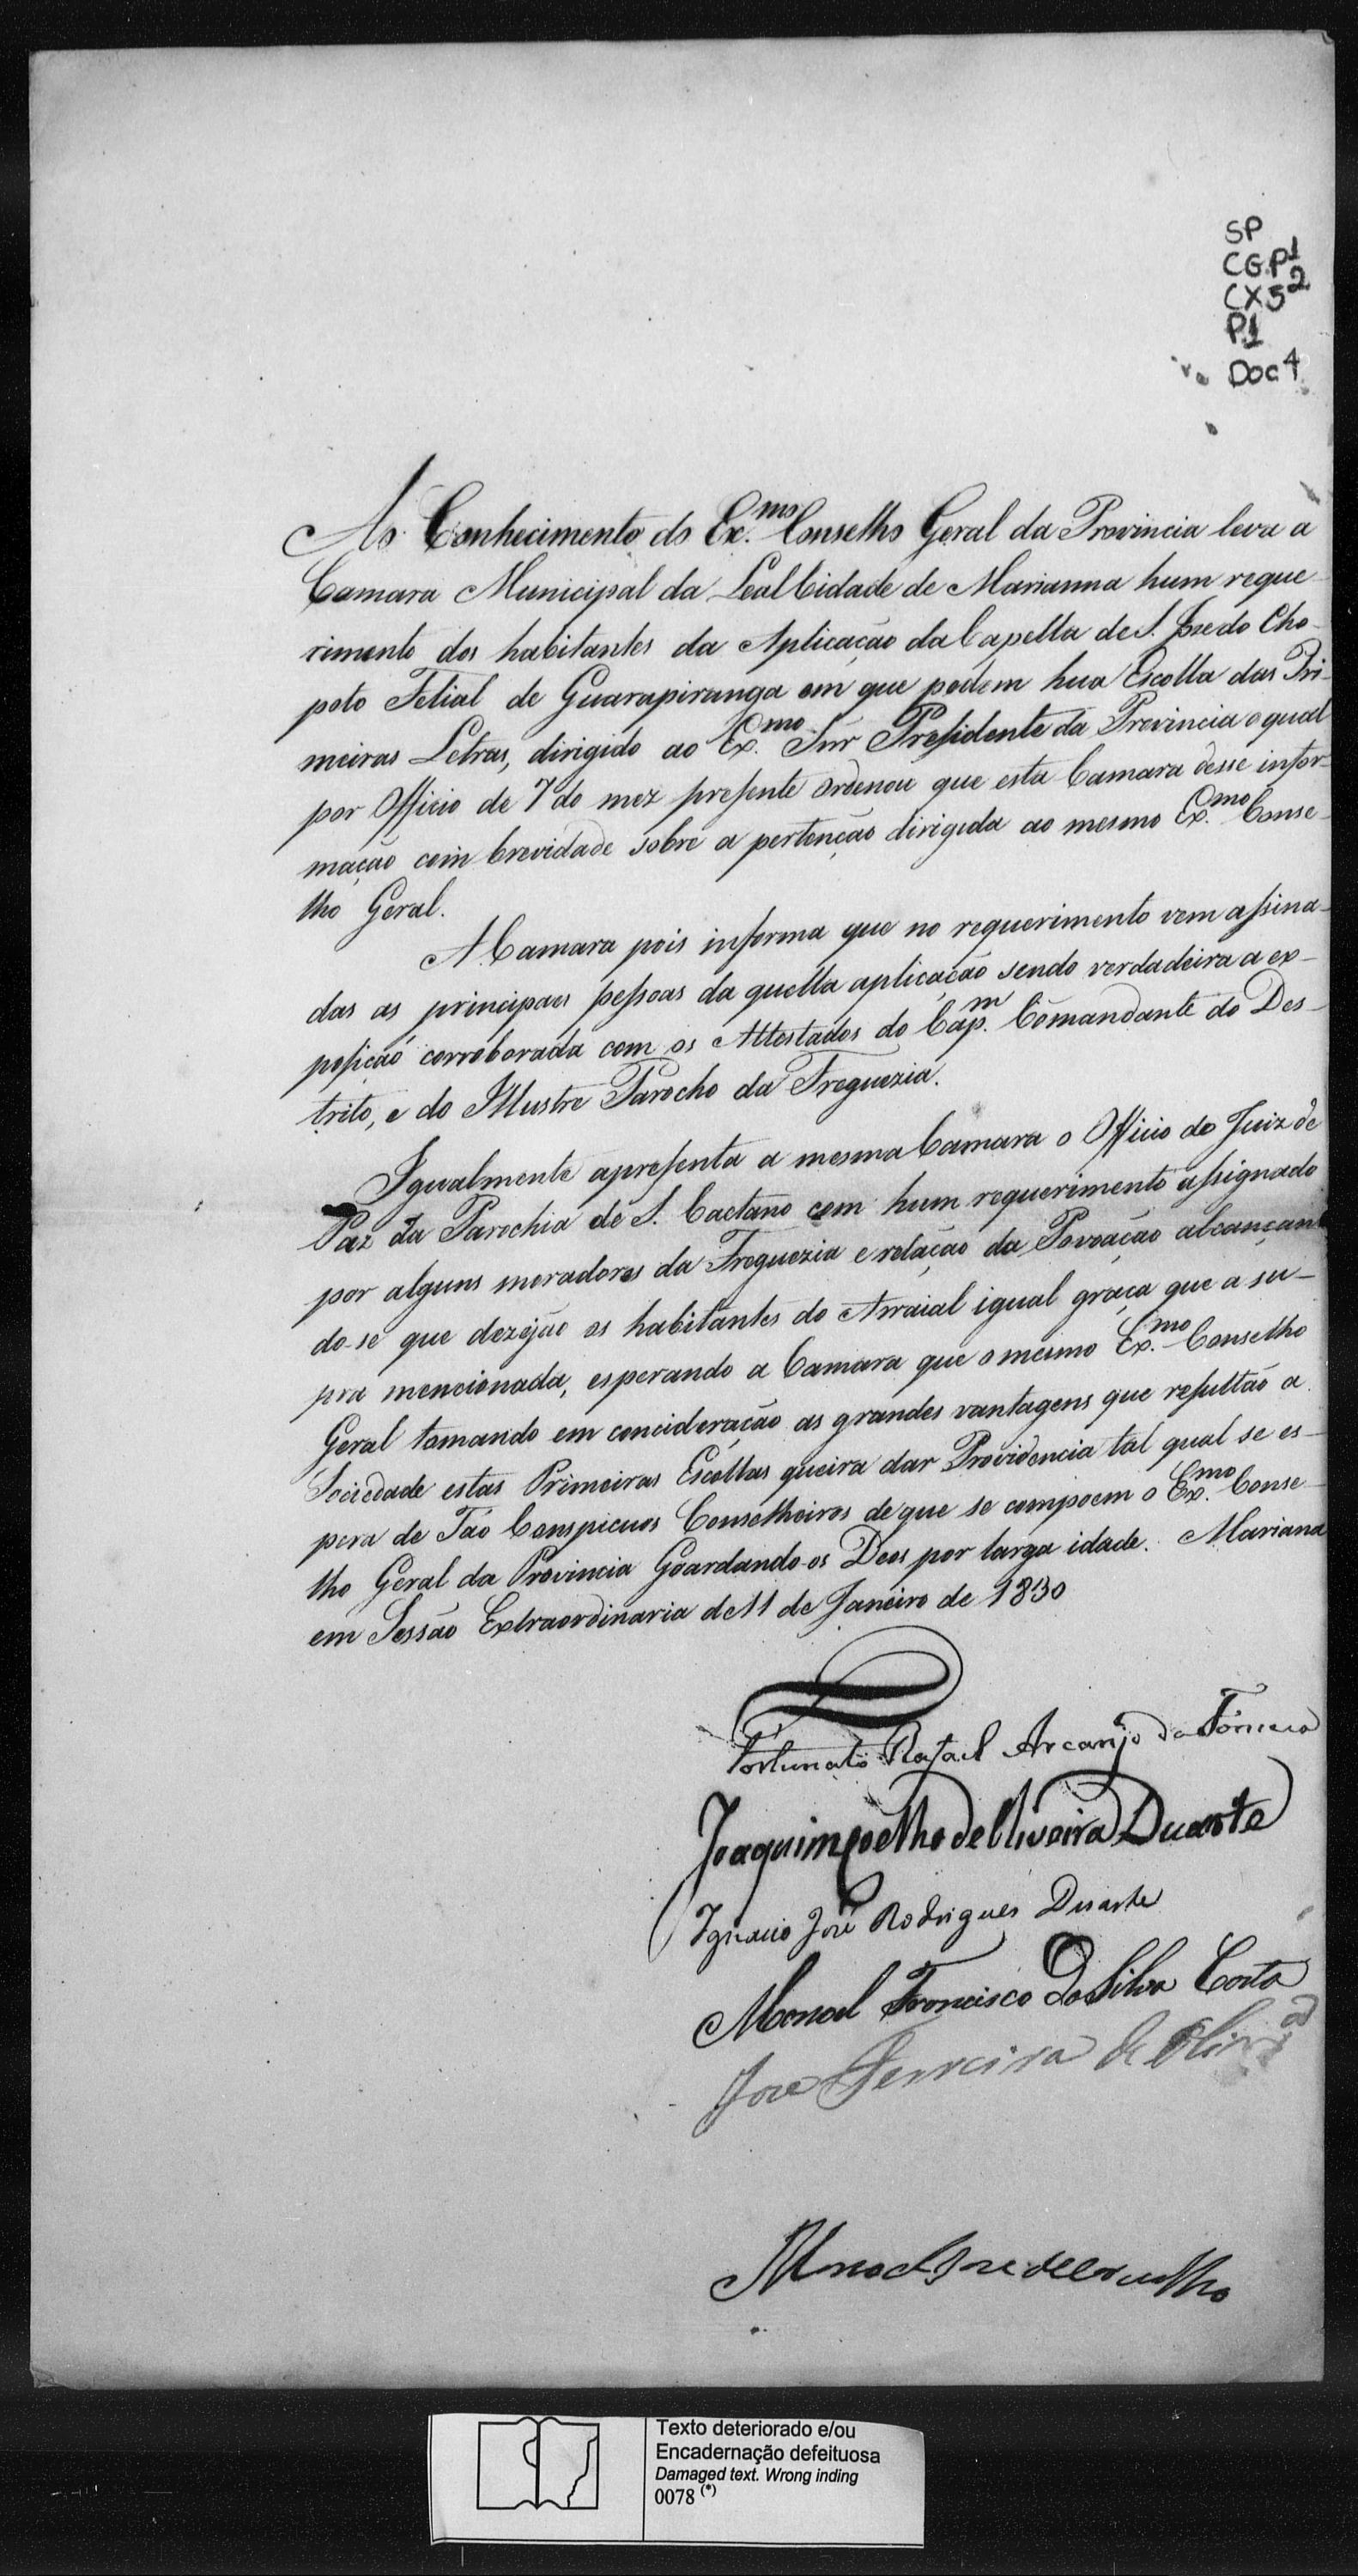 SP
CG.P1
CX52
P1
Doc 4
Ao Conhecimento do Ex.mo Conselho Geral da Provincia leva a
Camara Municipal da Leal Cidade de Marianna hum reque-
rimento dos habitantes da Aplicação da Capella de S. Jose do Cho-
poto Felial de Guarapiranga em que pedem hua Escolla das Pri-
meiras Letras, dirigido ao Ex.mo Snr Presidente da Provincia o qual
por Officio de 7 do mez presente ordenou que esta Camara desse infor-
mação com brevidade sobre a pertenção dirigida ao mesmo Ex.mo Conse-
lho Geral.
A Camara pois informa que no requerimento vem assina-
das as principaes pessoas da quella aplicação sendo verdadeira a ex-
posição corroborada com os Attestados do Cap.m Comandante do Des-
trito, e do Illustre Parocho da Freguezia.
Igualmente apresenta a mesma Camara o Officio do Juiz de
Paz da Parochia de S. Caetano com hum requerimento assignado
por alguns moradores da Freguezia e relação da Povoação alcançan
do-se que dezejão os habitantes do Arraial igual graça que a su-
pra mencionada, esperando a Camara que o mesmo Ex.mo Conselho
Geral tomando em concideração as grandes vantagens que resultão a
Sociedade estas Primeiras Escollas queira dar Providencia tal qual se es-
pera de Tão Conspicuos Conselheiros de que se compoem o Ex.mo Conse-
lho Geral da Provincia Goardando-os Deos por larga idade. Mariana
em Sessão Extraordinaria de 11 de Janeiro de 1830
Fortunato Rafael Arcanjo da Fonseca
Joaquim Coelho de Oliveira Duarte
Ignacio José Rodrigues Duarte
Manoel Francisco Da Silva Costa
Jose Ferreira de Olivra
Manoel Jose de Carvalho
Texto deteriorado e/ou
Encadernação defeituosa
Damaged text. Wrong inding
0078 (*)